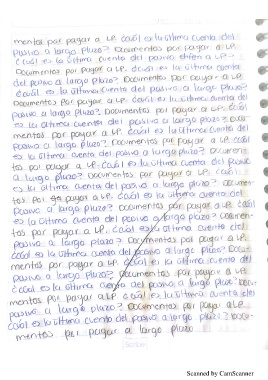 mentos por pagar a LP. Cuál es la última cuenta del
pasivo a largo plazo? Documentos por pagar a LP.
Cuál es la última cuenta del pasivo
Documentos por pagar a LP. Cuál es la última cuenta
del pasivo a largo plazo? Documentos por pagar a LP.
Cuál es la última cuenta del pasivo a largo plazo?
Documentos por pagar a LP. Cuál es la última cuenta
del pasivo a largo plazo? Documentos por pagar a LP.
Cuál es la última cuenta del pasivo a largo plazo? Docu-
mentos por pagar a LP. Cuál es la última cuenta del
pasivo a largo plazo? Documentos por pagar a LP. Cuál
es la última cuenta del pasivo a largo plazo? Documen-
tos por pagar a LP. Cuál es la última cuenta del pasivo
a largo plazo? Documentos por pagar a LP. Cuál
es la última cuenta del pasivo a largo plazo? Documen-
tos por pagar a LP. Cuál es la última cuenta del
pasivo a largo plazo? Documentos por pagar a LP. Cuál
es la última cuenta del pasivo a largo plazo? Documen-
tos por pagar a LP. Cuál es la última cuenta del
pasivo a largo plazo? Documentos por pagar a LP.
Cuál es la última cuenta del pasivo a largo plazo? Docu-
mentos por pagar a LP. Cuál es la última cuenta del
pasivo a largo plazo? Documentos por pagar a LP.
Cuál es la última cuenta del pasivo a largo plazo? Docu-
mentos por pagar a LP. Cuál es la última cuenta del
pasivo a largo plazo? Documentos por pagar a LP.
Cuál es la última cuenta del pasivo a largo plazo? Docu-
mentos por pagar a largo plazo
Scanned by CamScanner